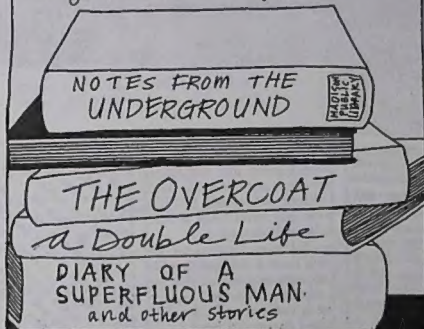 NOTES FROM THE
UNDERGROUND
MADISON
PUBLIC
LIBRARY
THE OVERCOAT
a Double Life
DIARY OF A
SUPERFLUOUS MAN
and other stories